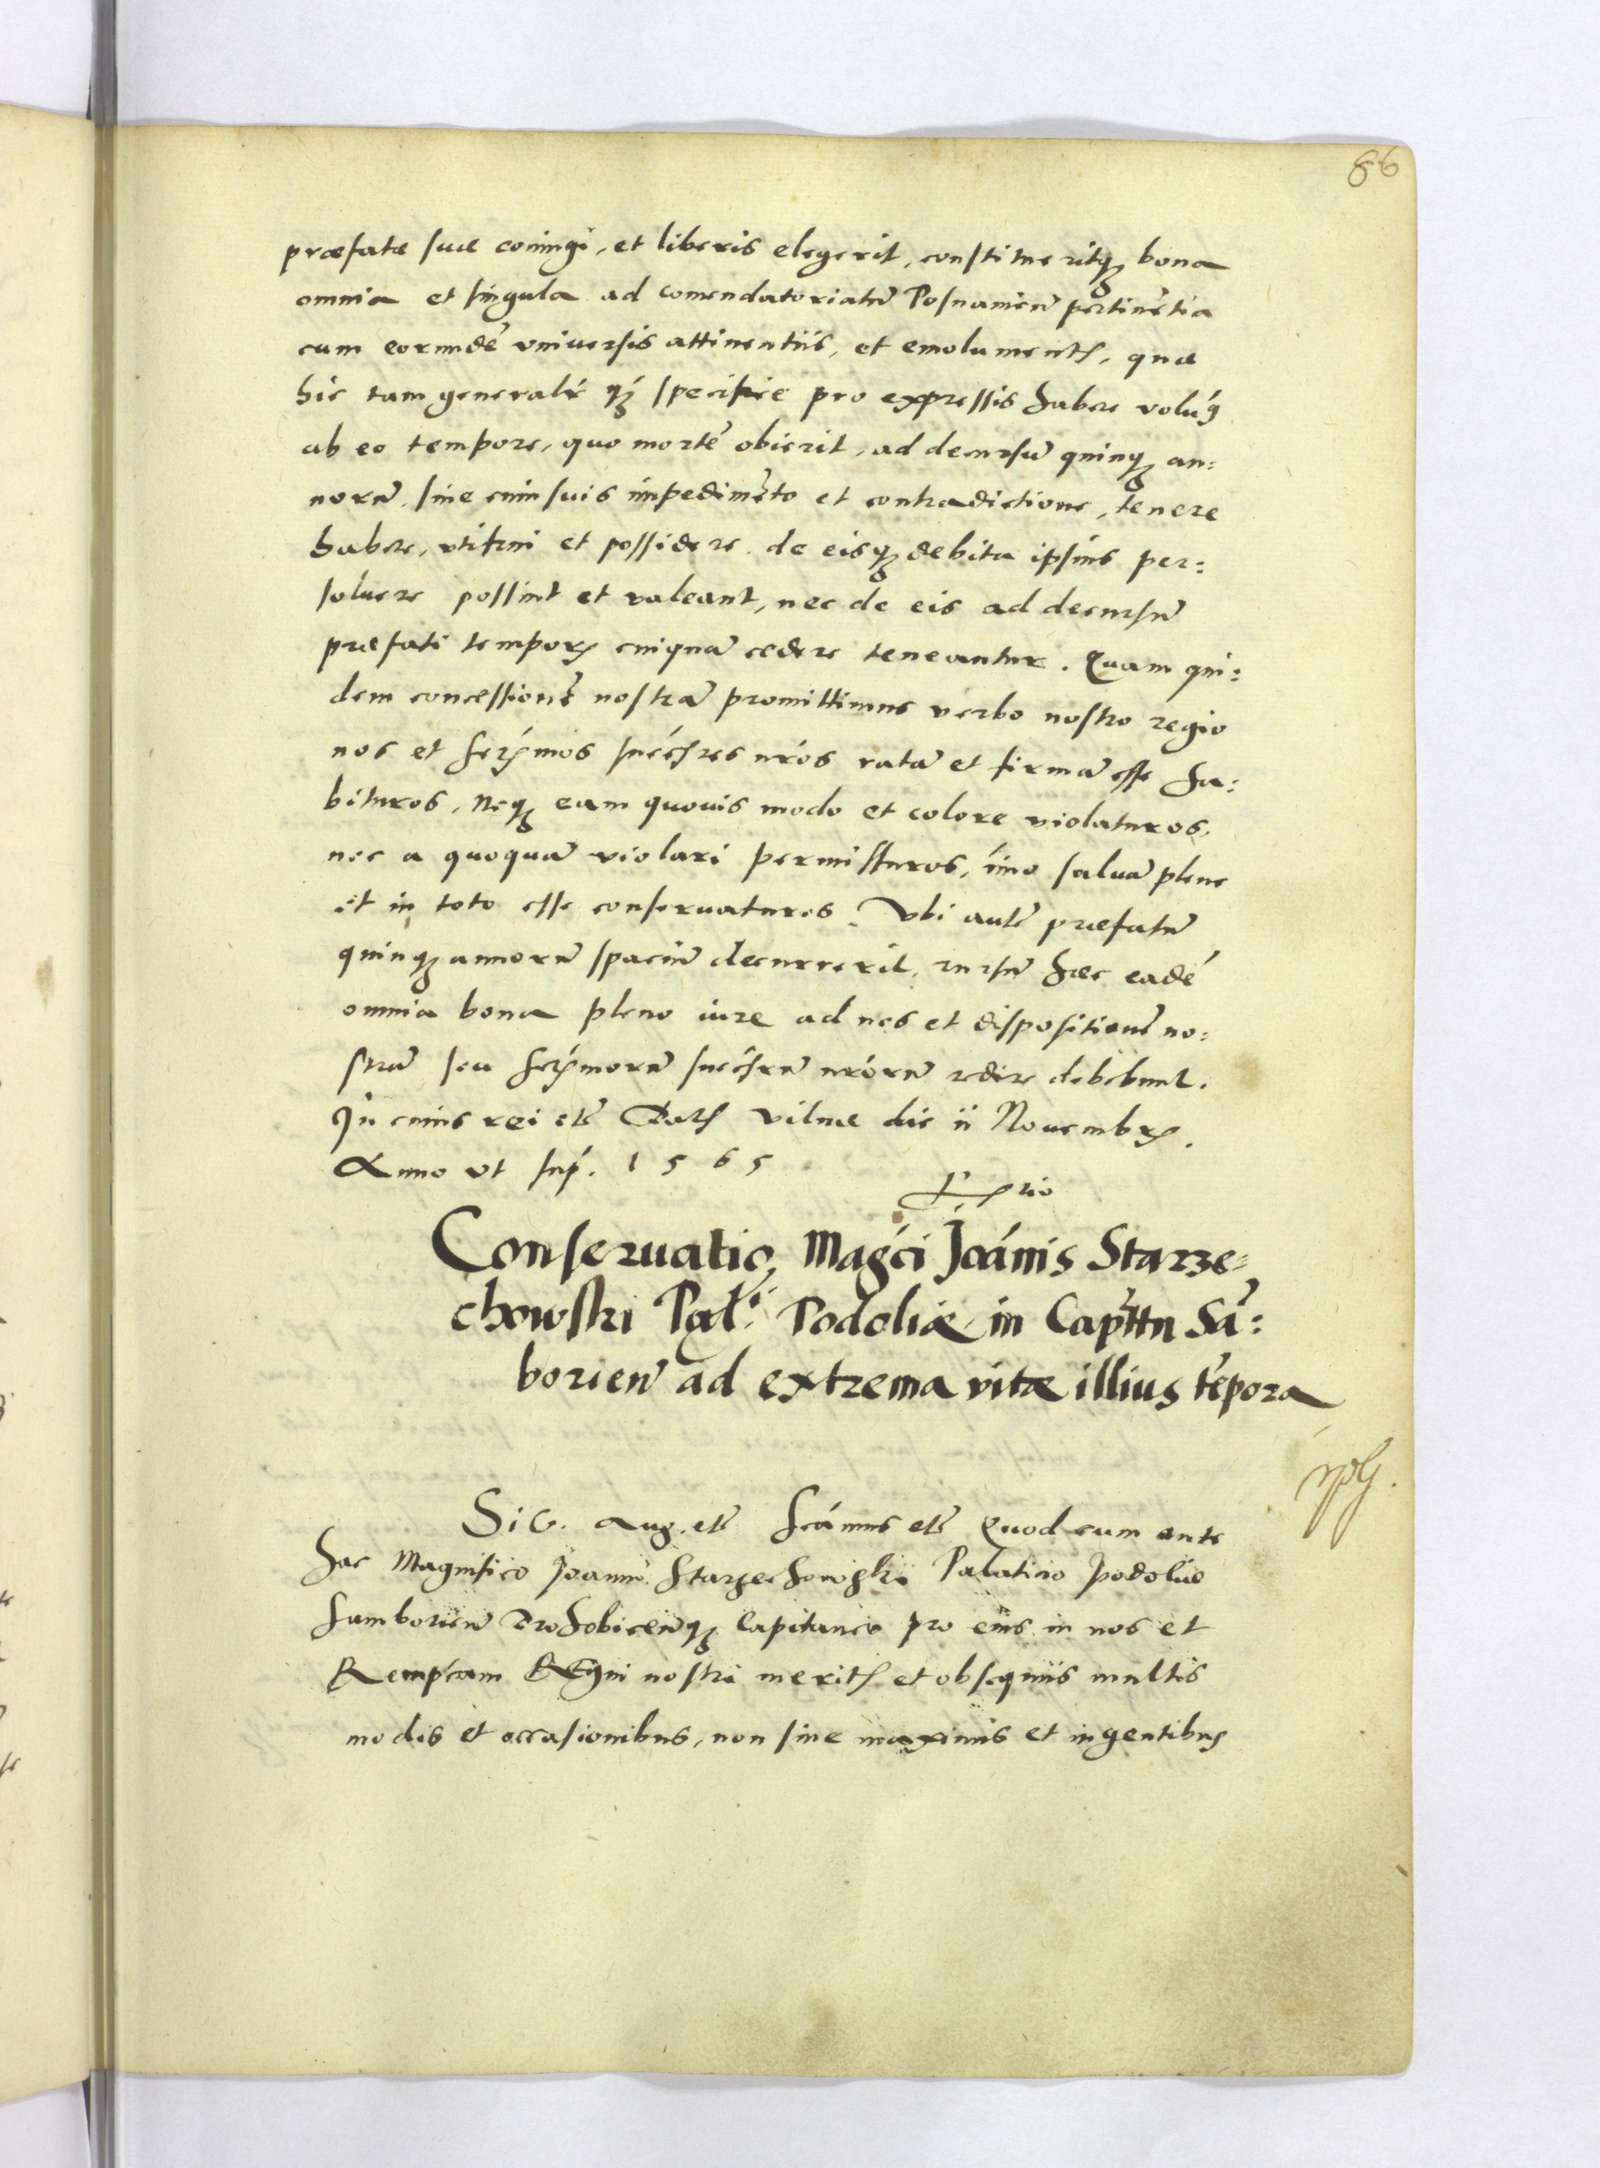 86
præfatæ suæ coniugi, et liberis elegerit, constitueritq₃ bona
omnia et singula ad comendatoriatū Posnanieñ pertinētia
cum eorundē vniuersis attinentiis, et emolumentꝭ, quæ
hic tam generalr̄ q̄ specifice pro expressis habere volum⁹
ab eo tempore, quo mortē obierit, ad decursū quinq₃ an:
norū, sine cuiusuis impedimēto et contradictione, tenere
habere, vtifrui et possidere, de eisq₃ debita ipsius per:
soluere possint et valeant, nec de eis ad decursū
præfati temporꝭ cuiquā cedere teneantur. Quam qui:
dem concessionē nostrā promittimus verbo nostro regio
nos et serꝭmos succ̄res nr̄os ratā et firmā esse ha:
bituros, Neq₃ eam quouis modo et colore violaturos,
nec a quoquā violari permissuros, īmo saluā plene
et in toto esse conseruaturos. Vbi autē præfatū
quinq₃ annorū spaciū decurrerit, rursū hæc eadē
omnia bona pleno iure ad nos et dispositionē no:
strā seu serꝭmorū succ̄rū nr̄orū redire debebunt.
In cuius rei etc̄ Datꝭ Vilnæ die ii Nouembrꝭ.
Anno vt sup̄. 1565
Conseruatio Magc̄i Joānnis Starze=
chowski Pal̄i Podoliæ in Cap̄ttu Sā:
borieñ ad extrema vitæ illius tēpora
SiG. Aug. etc̄ Sc̄amus etc̄ Quod cum ante
hac Magnifico Joanni Starzechowski Palatino Podoliæ
Samborieñ Drohobiceñq₃ Capitaneo pro eius in nos et
Remp̄cam Regni nostri meritꝭ et obsequiis multis
modis et occasionibus, non sine maximis et ingentibus